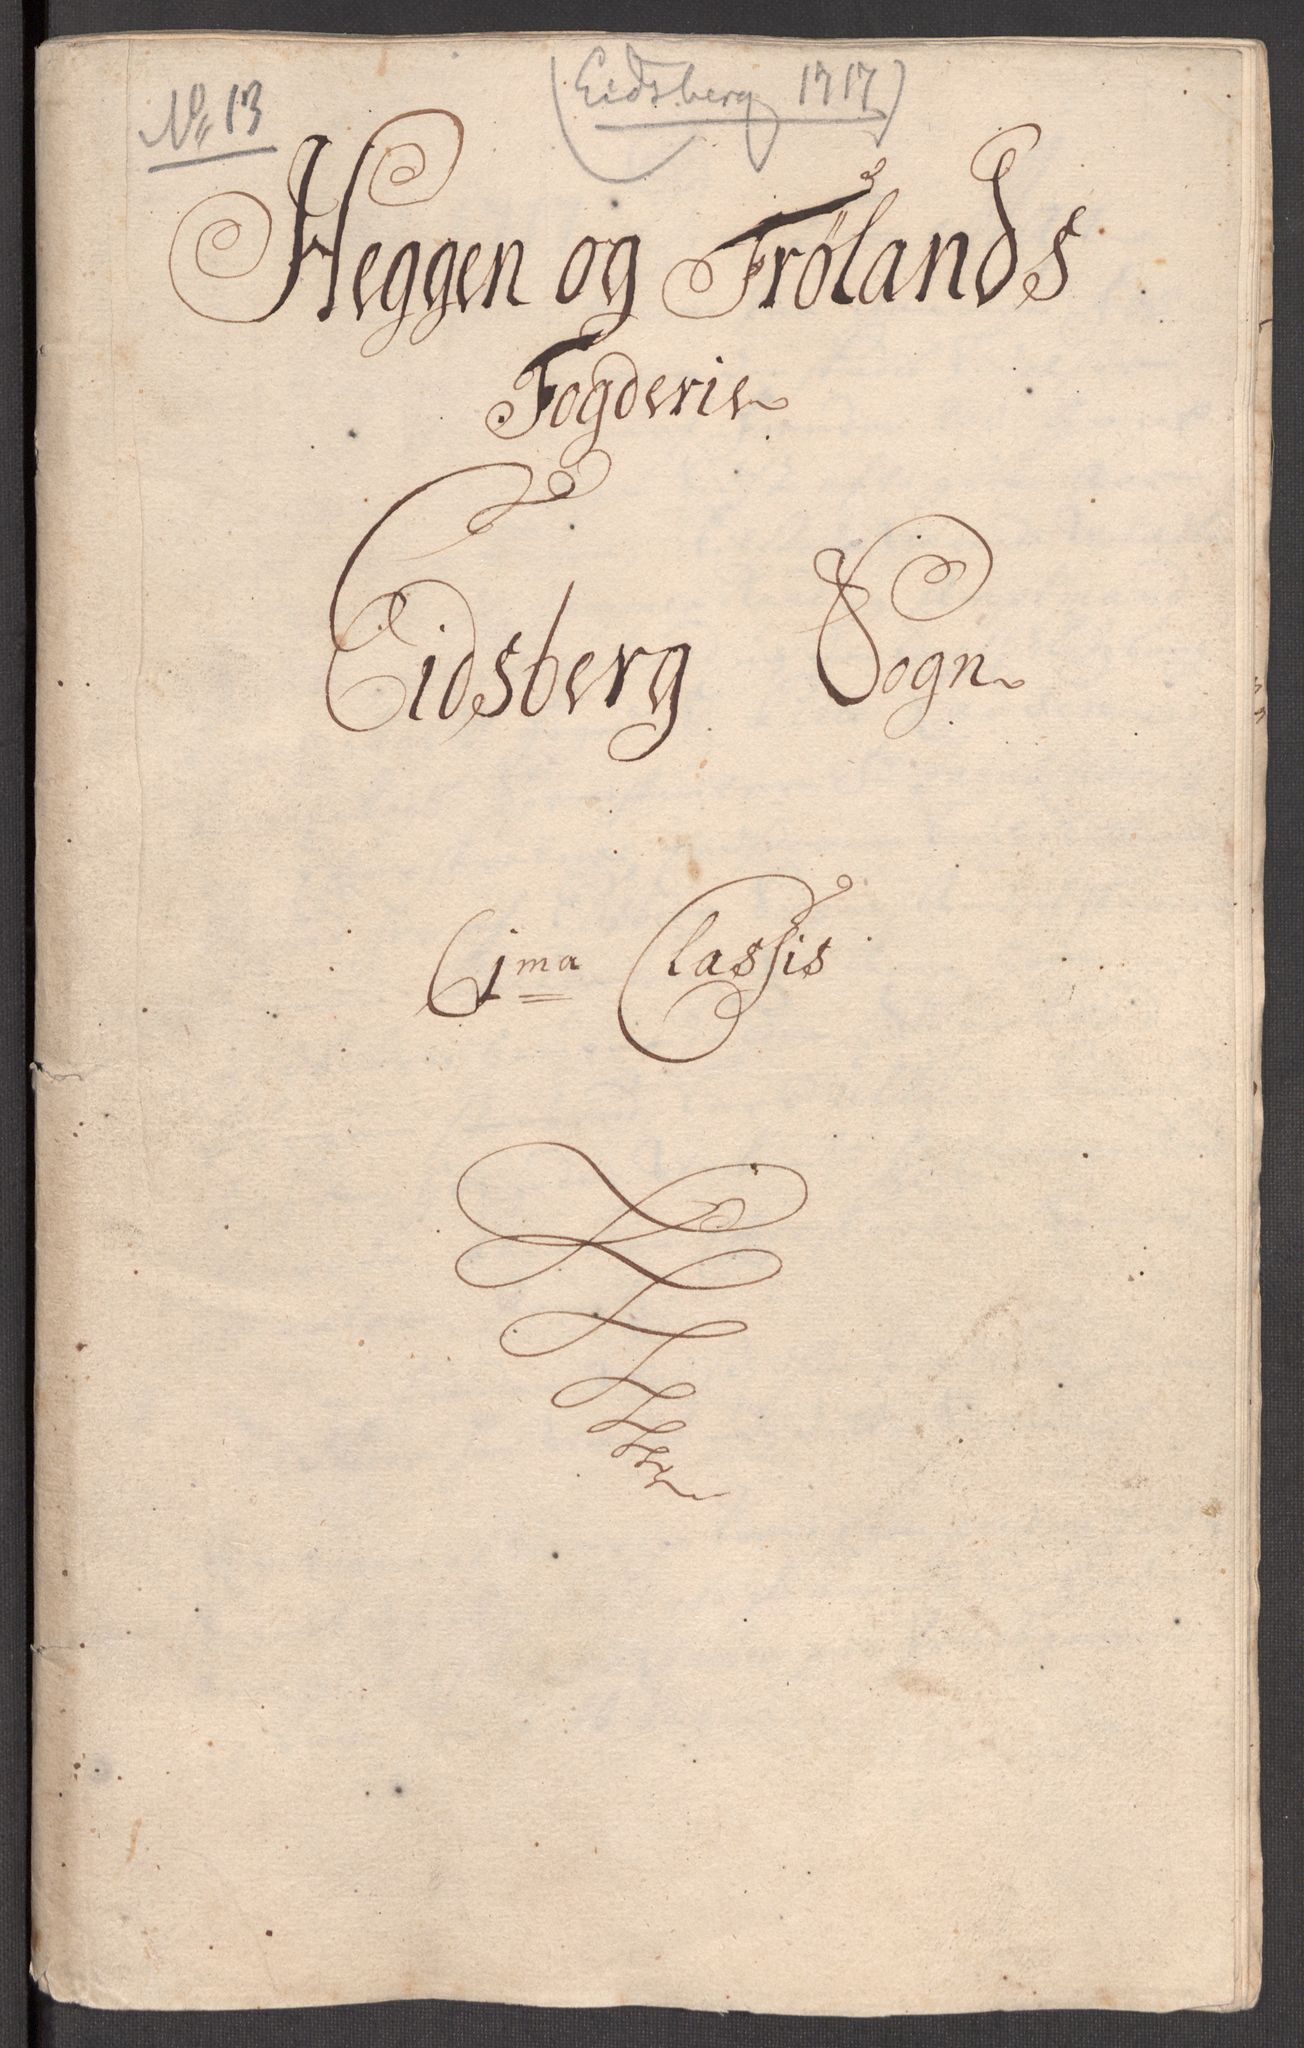 No 13 (Eidsberg 1717)
Heggen og Frölands
Fogderie
Eidsberg Sogn
1ma Classis